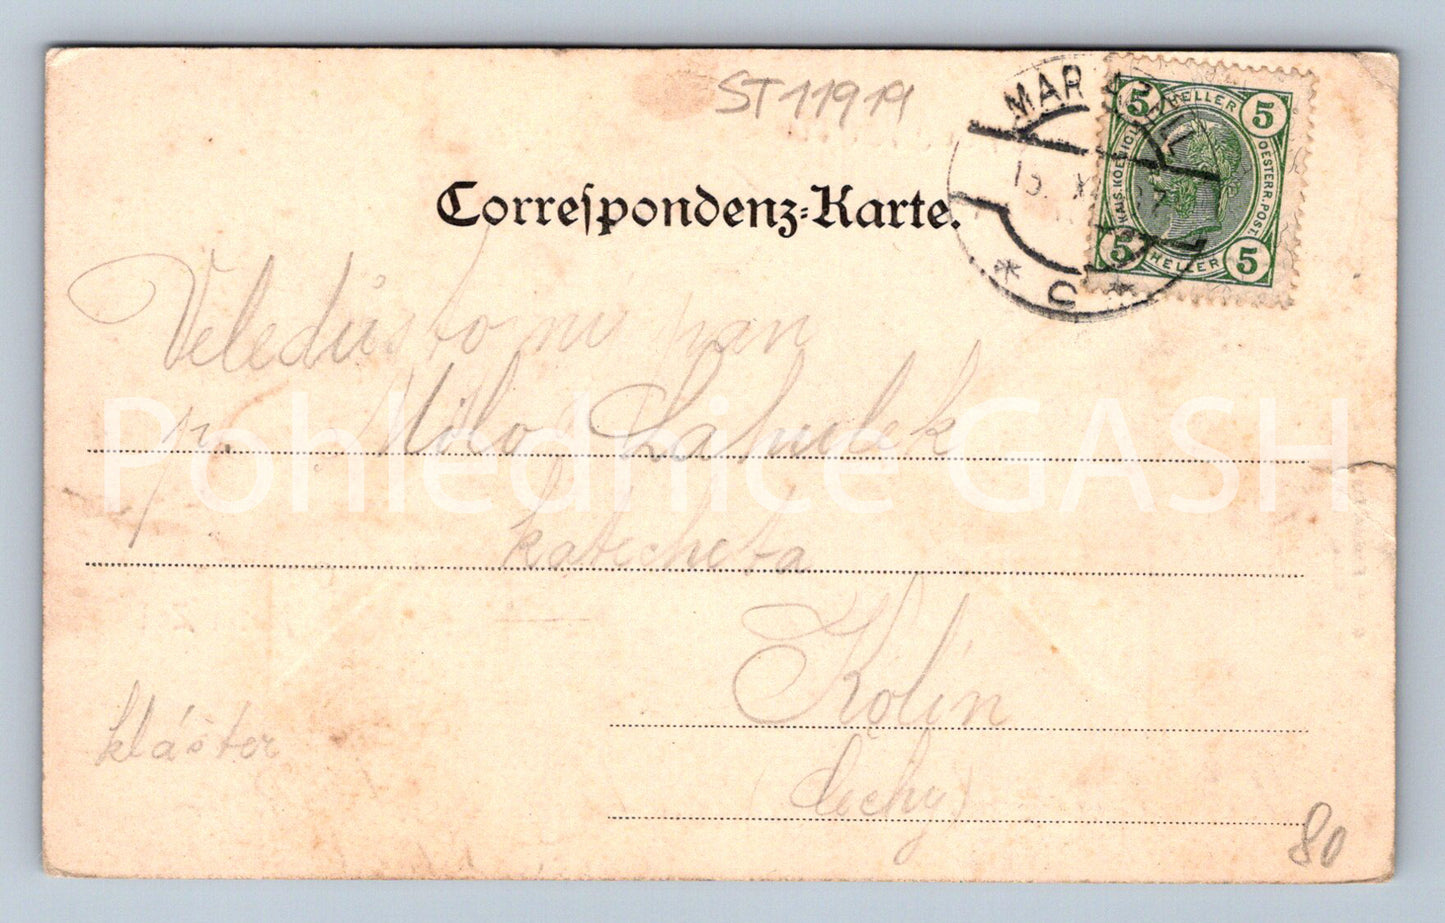 ST11919
MARIAZELL
15. XI. 07
* C *
5 HELLER 5
KAIS. KOENIGL.
OESTERR. POST.
5 HELLER 5
Correſpondenz-Karte.
Veledůstojný pan
p. Milo
katecheta
Kolín
(Čechy)
klášter
80
Pohlednice GASH